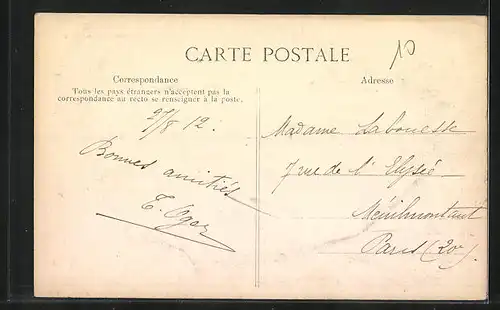 CARTE POSTALE
10
Correspondance
Tous les pays étrangers n'acceptent pas la
correspondance au recto se renseigner à la poste.
Adresse
27/8 12.
Bonnes amitiés
Madame Labouesse
7 rue de l'Elysée
Ménilmontant
Paris (20e).